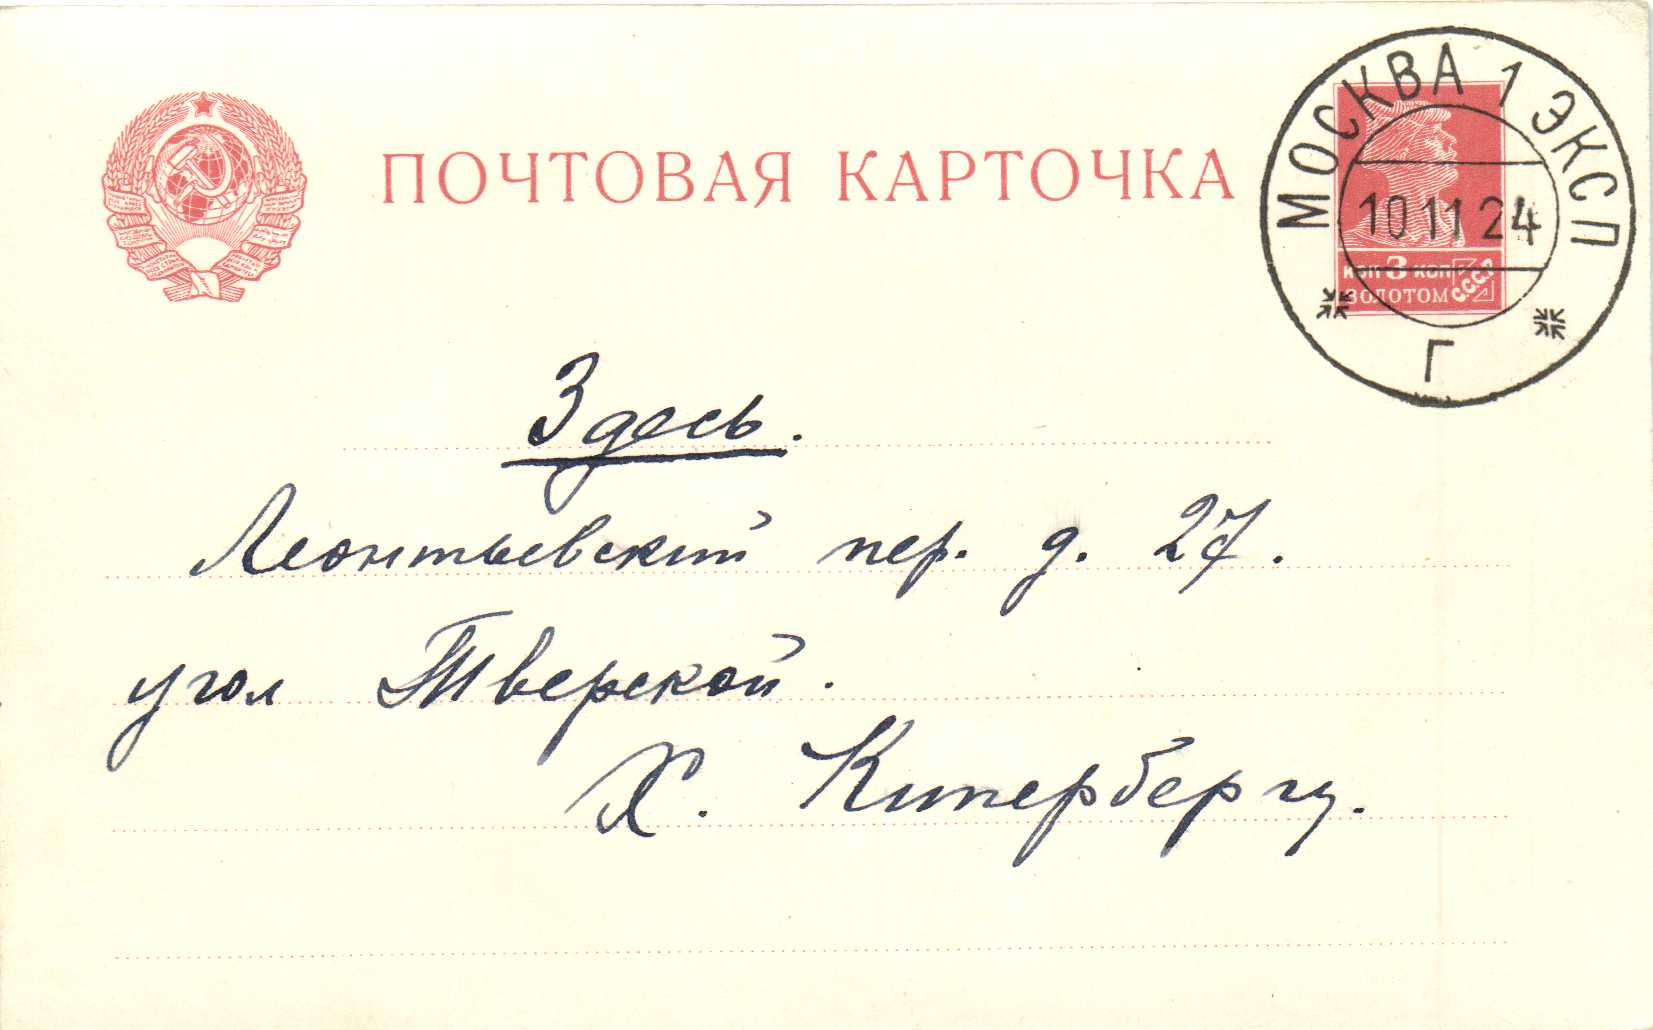 ПОЧТОВАЯ КАРТОЧКА
МОСКВА 1 ЭКСП
10 11 24
Г
КОП 3 КОП
ЗОЛОТОМ
С.С.С.Р
Здесь.
Леонтьевский пер. д. 27.
угол Тверской.
Х. Кипербергу.